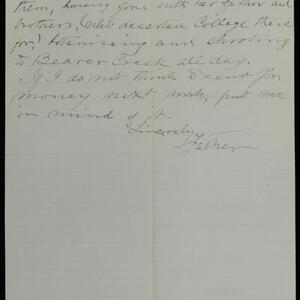 them, having gone with her father and
brothers, who deserted College there
for, botanising and shooting
to Beaver Creek, all day.
If I do not think to send for
money next week, put me
in mind of it.
Sincerely,
Father